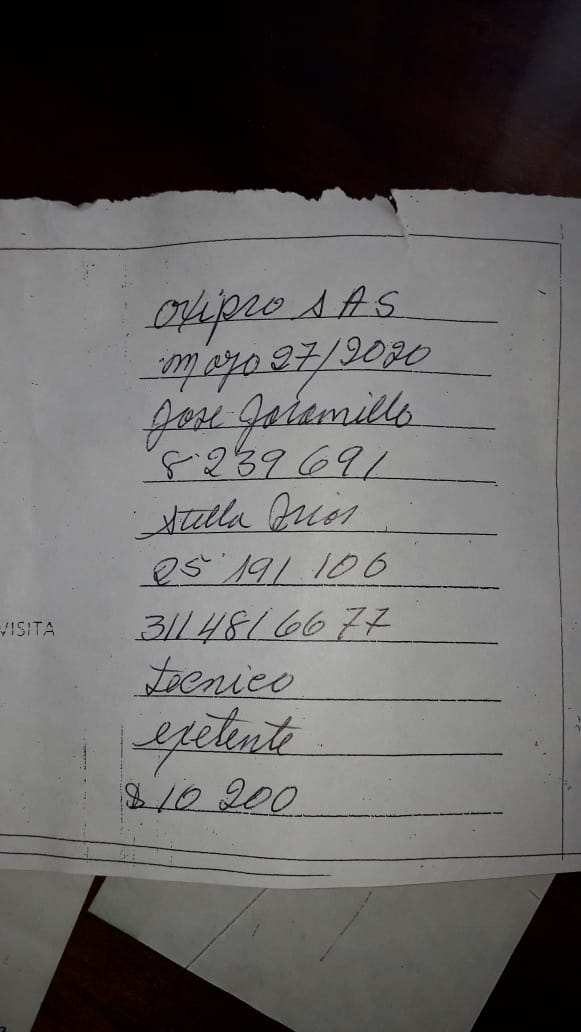 oxipro SAS
mayo 27/2020
Jose Jaramillo
8'239 691
Stella Arias
25'191 106
VISITA
311 481 66 77
tecnico
exetente
$ 10 200